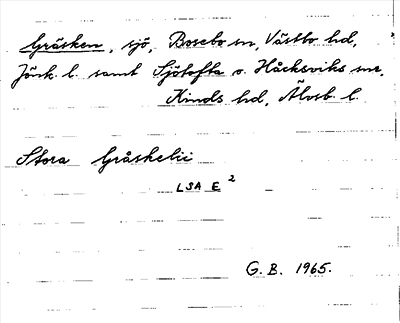 Gräsken, sjö, Bosebo sn, Västbo hd,
Jönk. l. samt Sjötofta o. Håcksviks snr,
Kinds hd, Älvsb. l.
Stora Gråskelii
LSA E 2
G. B. 1965.